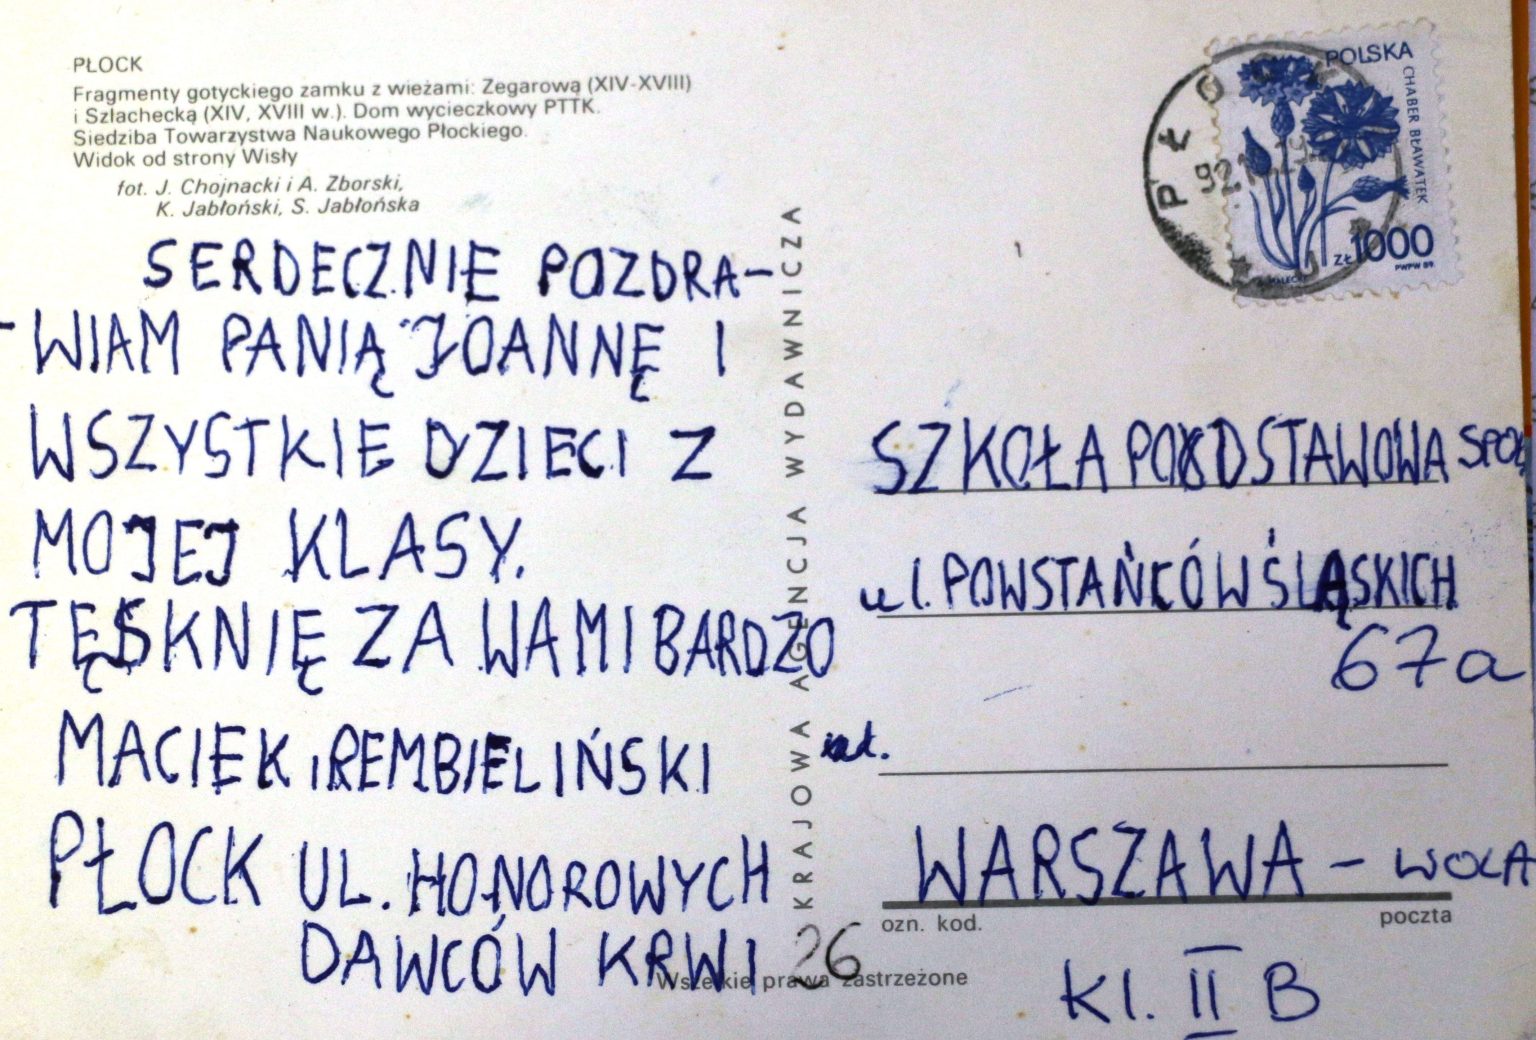 PŁOCK
Fragmenty gotyckiego zamku z wieżami: Zegarową (XIV-XVIII)
i Szlachecką (XIV, XVIII w.). Dom wycieczkowy PTTK.
Siedziba Towarzystwa Naukowego Płockiego.
Widok od strony Wisły
fot. J. Chojnacki i A. Zborski,
K. Jabłoński, S. Jabłońska
SERDECZNIE POZDRA-
-WIAM PANIĄ JOANNĘ I
WSZYSTKIE DZIECI Z
MOJEJ KLASY.
TĘSKNIĘ ZA WAMI BARDZO
MACIEK REMBIELIŃSKI
PŁOCK UL. HONOROWYCH
DAWCÓW KRWI 26
Wszelkie prawa zastrzeżone
KRAJOWA AGENCJA WYDAWNICZA
POLSKA
CHABER BŁAWATEK
ZŁ 1000
PWPW 89
PŁOCK
SZKOŁA PODSTAWOWA SPOŁ
ul. POWSTAŃCÓW ŚLĄSKICH
67a
WARSZAWA - WOLA
ozn. kod.
poczta
Kl. II B